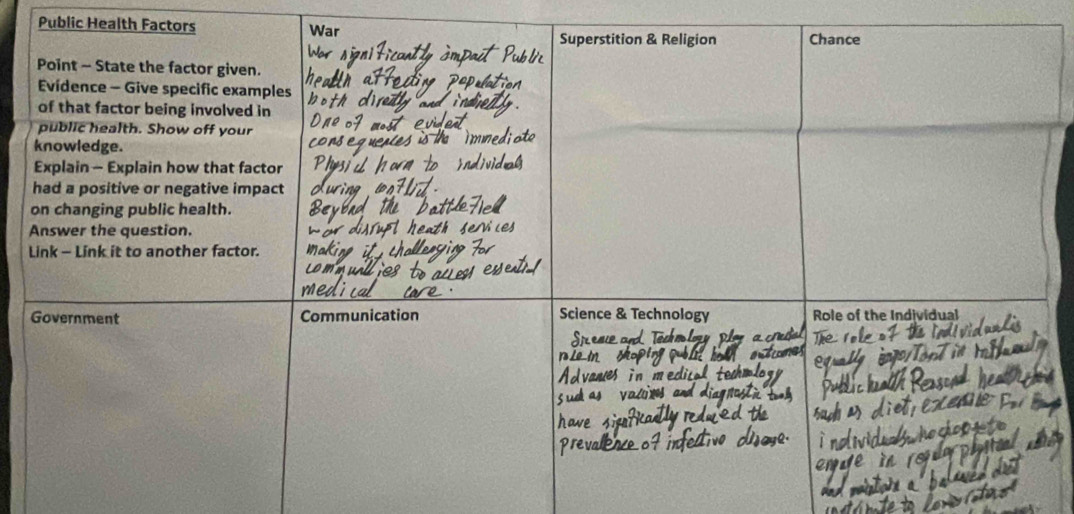 Public Health Factors
Point - State the factor given.
Evidence - Give specific examples
of that factor being involved in
public health. Show off your
knowledge.
Explain - Explain how that factor
had a positive or negative impact
on changing public health.
Answer the question.
Link - Link it to another factor.
War
War significantly impact Public
health affecting population
both directly and indirectly.
One of most evident
consequences is the immediate
Physicl harm to individuals
during conflict.
Beyond the battlefield
war disrupt heath services
making it challenging for
communities to access essential
medical care.
Superstition & Religion
Chance
Government
Communication
Science & Technology
Science and Technology play a crucial
role in shaping public health outcomes
Advances in medical technology
such as vaccines and diagnostic tools
have significantly reduced the
prevalence of infective disease.
Role of the Individual
The role of the individual is
equally important in
Public health
such as diet, exercise For
individuals who choose to
engage in regular physical
and maintain a balanced diet
to lower